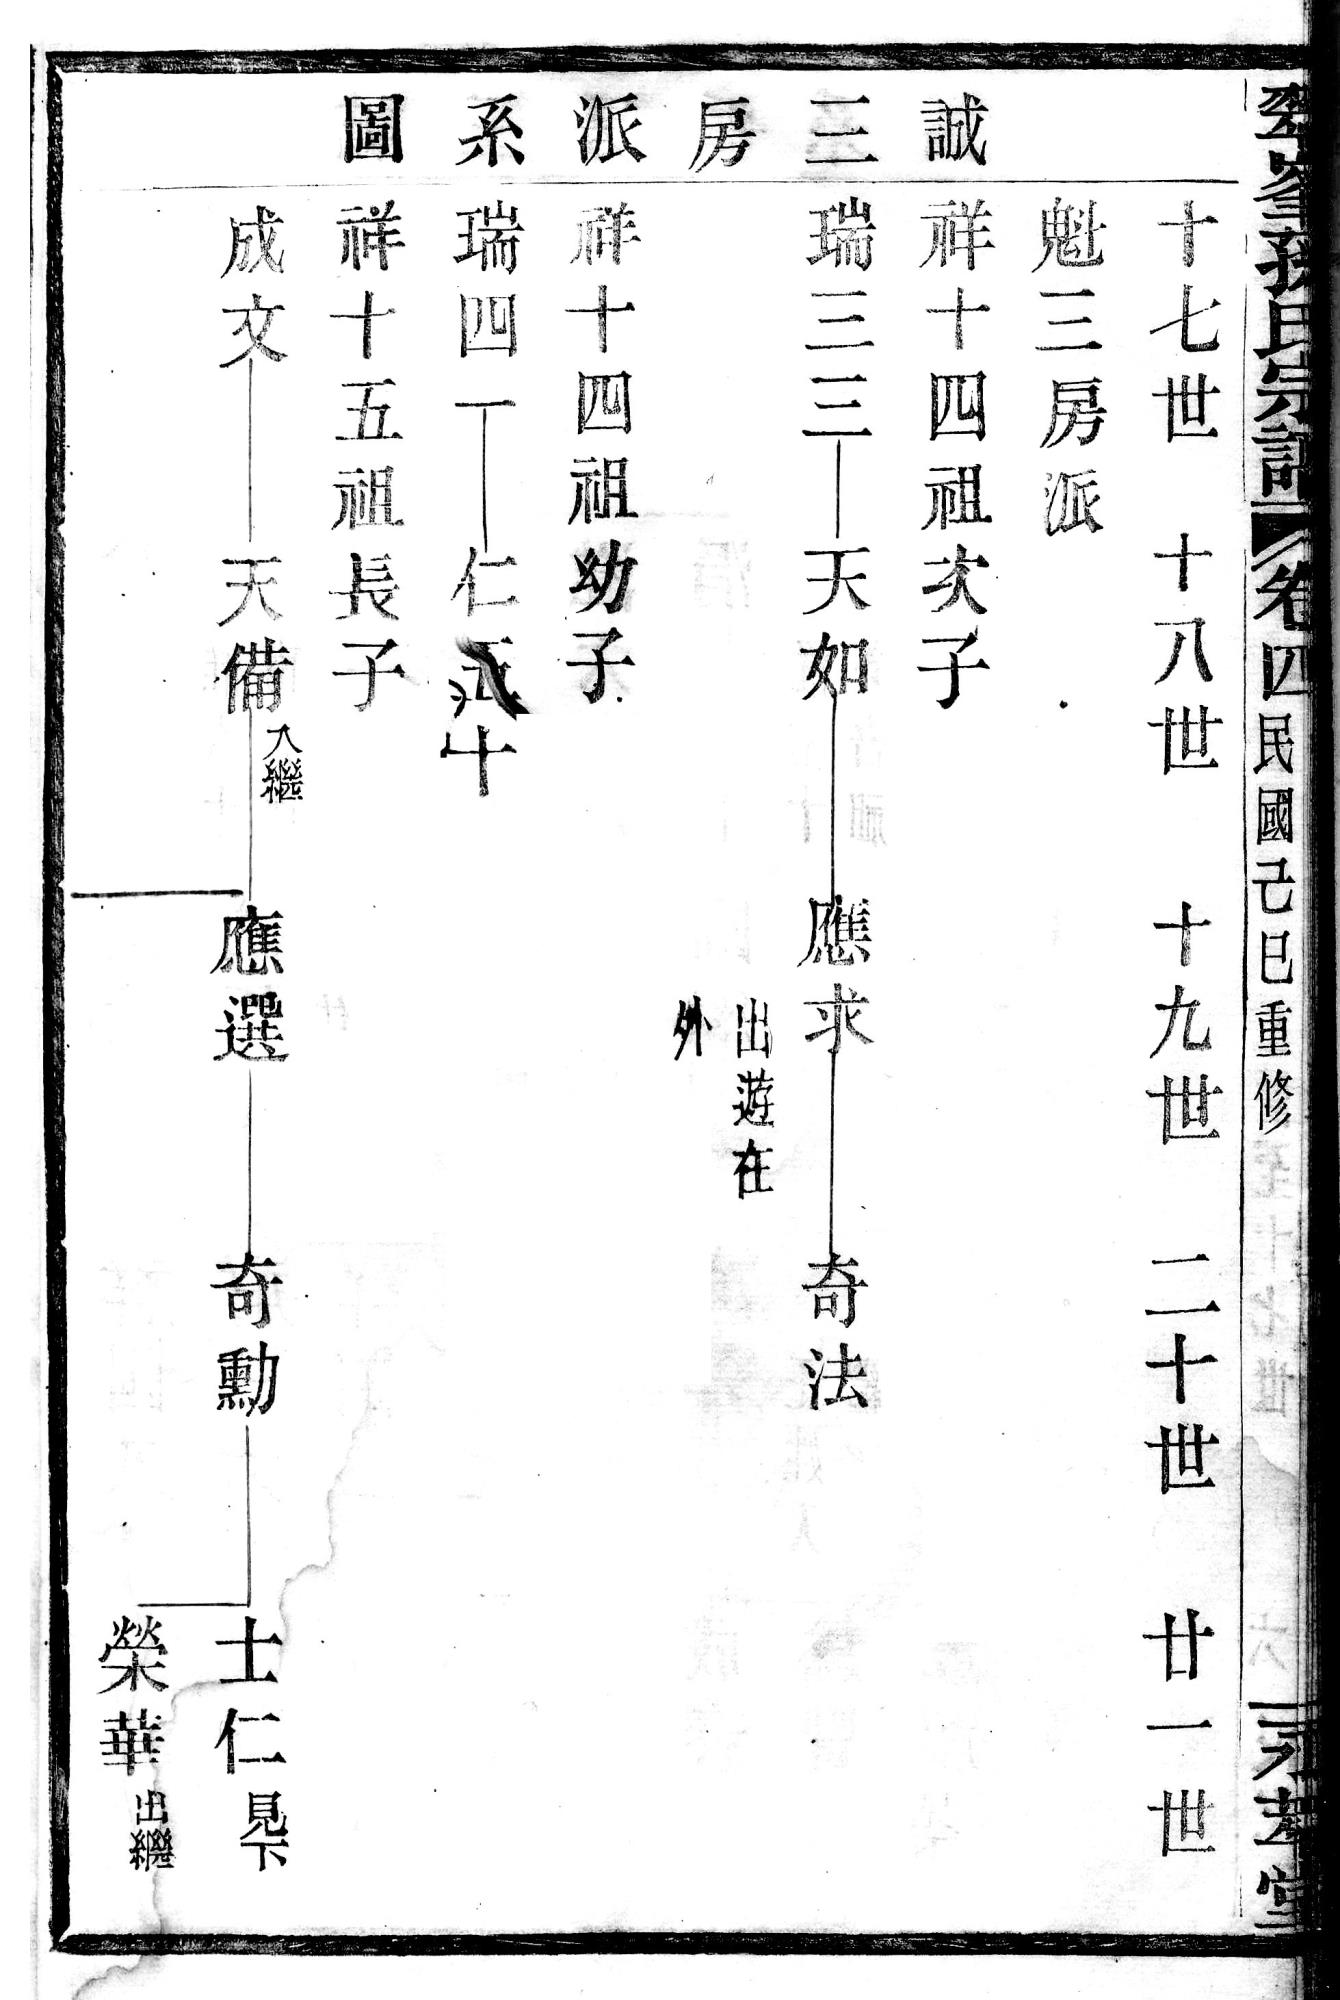 孫氏宗譜 卷四 民國己巳重修
誠三房派系圖
十七世 十八世 十九世 二十世 廿一世
魁三房派
祥十四祖次子
瑞三三 天如 應求 奇法
出遊在外
祥十四祖幼子
瑞四一 仁 十
祥十五祖長子
成文 天備 入繼 應選 奇勳 士仁 見下
榮華 出繼